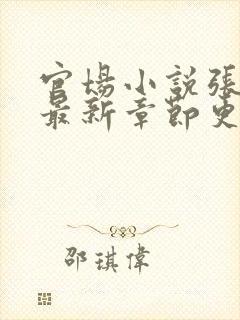 官場小說張
最新章節更
邵琪偉